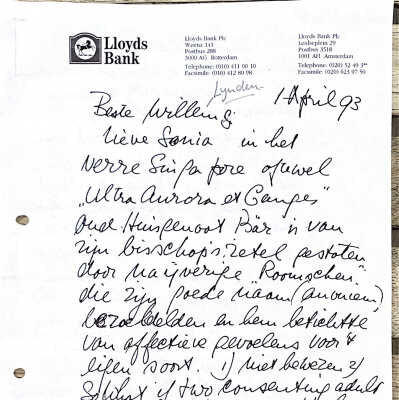 Lloyds
Bank
Lloyds Bank Plc
Weena 243
Postbus 288
3000 AG Rotterdam
Telephone: (010) 411 00 10
Facsimile: (010) 412 80 98
Lloyds Bank Plc
Leidseplein 29
Postbus 3518
1001 AH Amsterdam
Telephone: (020) 52 49 3
Facsimile: (020) 623 97 50
Lynden
1 April 93
Beste Willem &
lieve Sonia in het
verre Singapore ofwel
„Ultra Aurora et Ganges"
oud Huisgenoot Bär is van
zijn bisschops.zetel gestoten
door naijverige "Roomschen"
die zijn goede naam (anoniem)
bezoedelden en hem betichtte
van affectieve gevoelens voor 't
eigen soort. 1) niet bewezen 2)
So what if two consenting adult